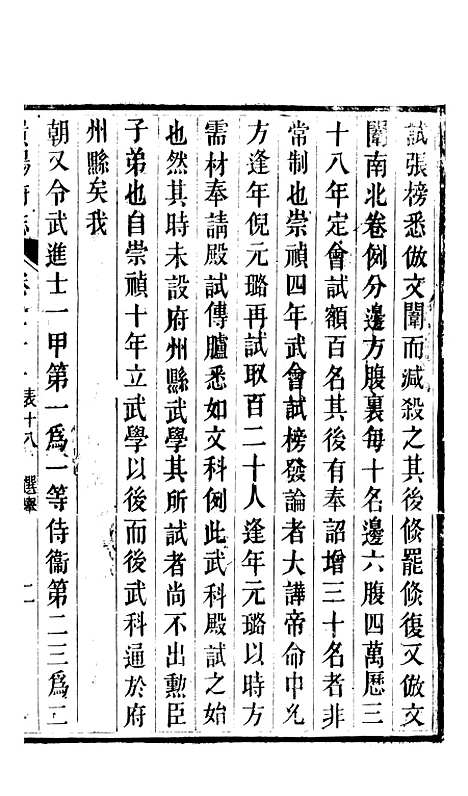 試張榜悉倣文闈而減殺之其後倏罷倏復又倣文
闈南北卷例分邊方腹裏每十名邊六腹四萬歷三
十八年定會試額百名其後有奉詔增三十名者非
常制也崇禎四年武會試榜發論者大譁帝命中允
方逢年倪元璐再試取百二十人逢年元璐以時方
需材奉請殿試傳臚悉如文科例此武科殿試之始
也然其時未設府州縣武學其所試者尚不出勳臣
子弟也自崇禎十年立武學以後而後武科通於府
州縣矣我
朝又令武進士一甲第一爲一等侍衞第二三爲二
陽府志 表十八 選舉 二